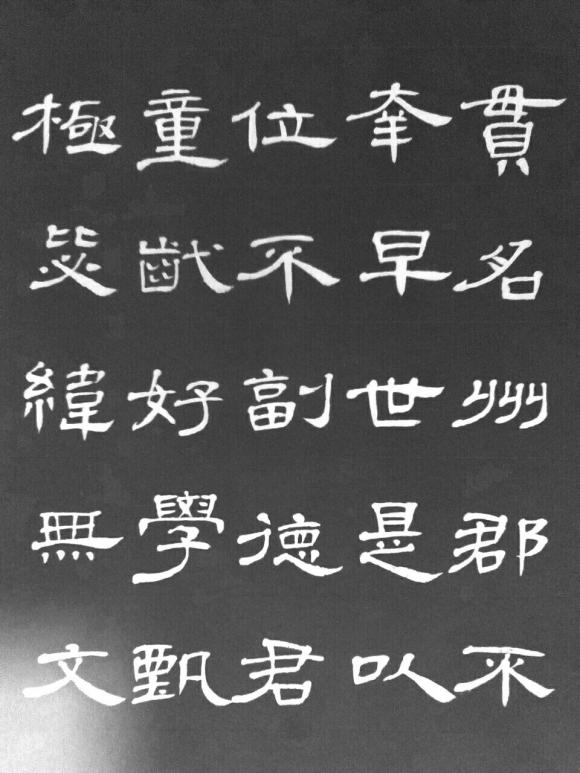 貫名州郡不
幸早世是以
位不副德君
童齔好學甄
極毖緯無文